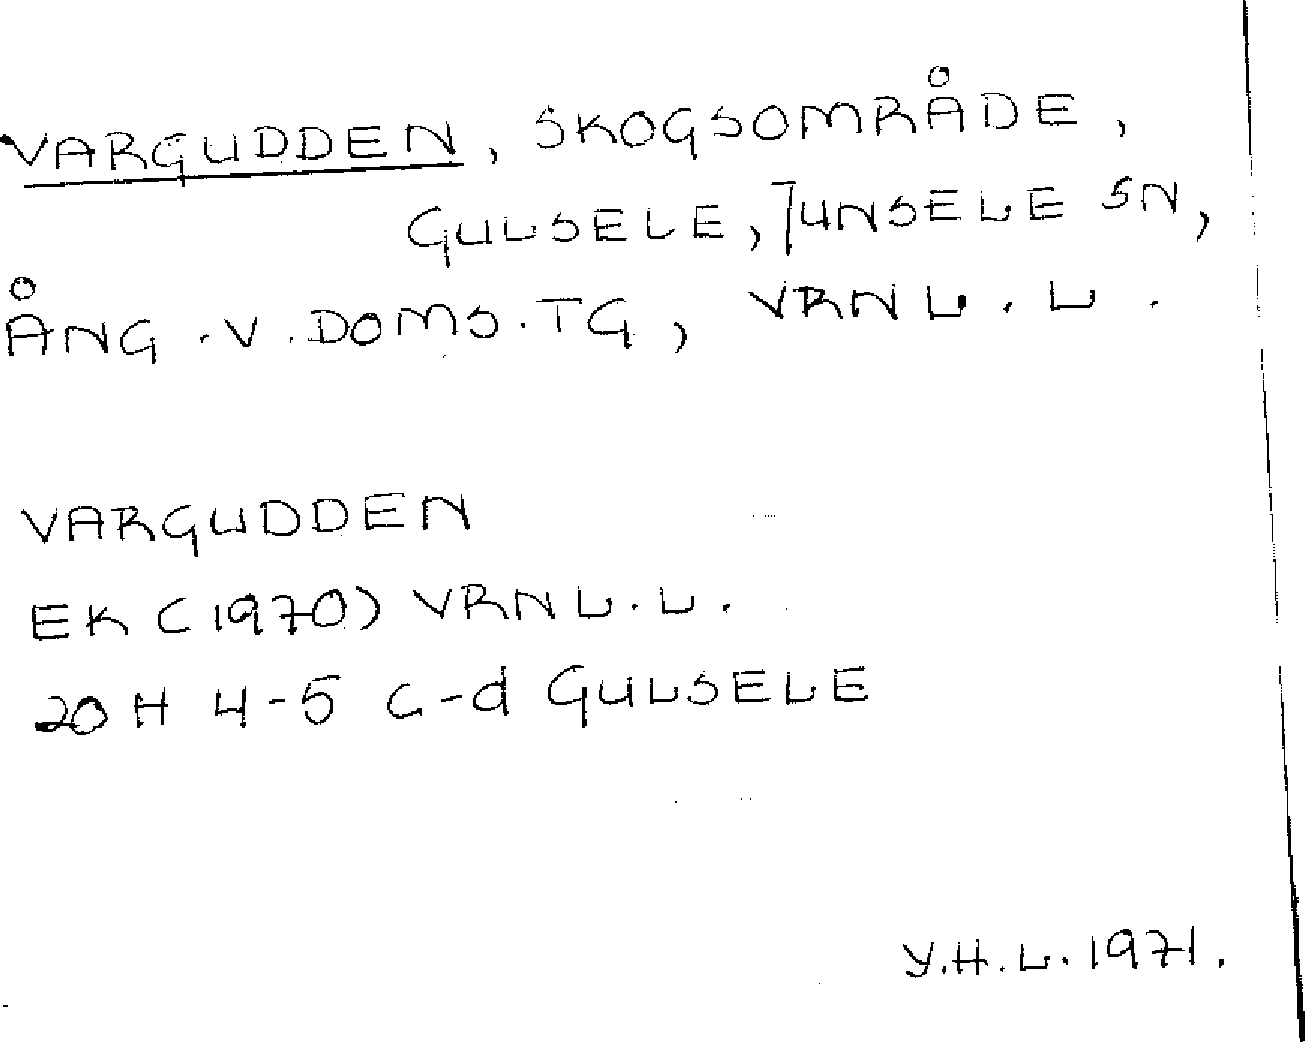 VARGUDDEN, SKOGSOMRÅDE,
GULSELE, JUNSELE SN,
ÅNG.V.DOMS.TG, VRNL.L.
VARGUDDEN
EK (1970) VRNL.L.
20 H 4-5 c-d GULSELE
Y.H.L. 1971.